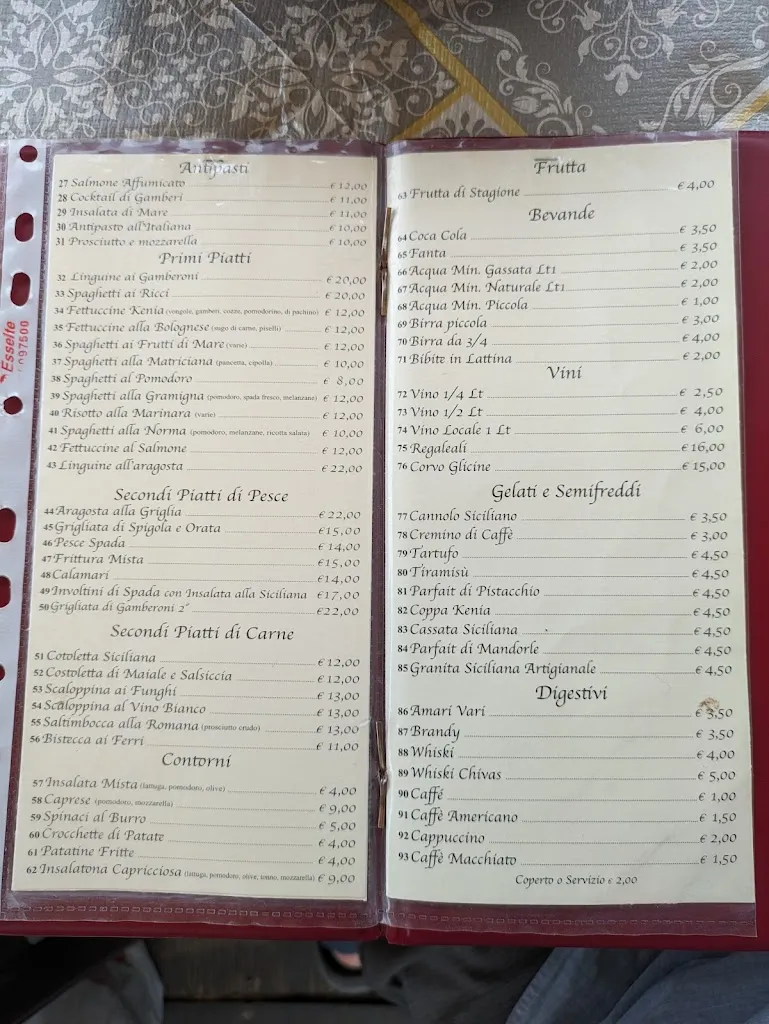 Antipasti
27 Salmone Affumicato € 12,00
28 Cocktail di Gamberi € 11,00
29 Insalata di Mare € 11,00
30 Antipasto all'Italiana € 10,00
31 Prosciutto e mozzarella € 10,00
Primi Piatti
32 Linguine ai Gamberoni € 20,00
33 Spaghetti ai Ricci € 20,00
34 Fettuccine Kenia (vongole, gamberi, cozze, pomodorino, di pachino) € 12,00
35 Fettuccine alla Bolognese (sugo di carne, piselli) € 12,00
36 Spaghetti ai Frutti di Mare (varie) € 12,00
37 Spaghetti alla Matriciana (pancetta, cipolla) € 10,00
38 Spaghetti al Pomodoro € 8,00
39 Spaghetti alla Gramigna (pomodoro, spada fresco, melanzane) € 12,00
40 Risotto alla Marinara (varie) € 12,00
41 Spaghetti alla Norma (pomodoro, melanzane, ricotta salata) € 10,00
42 Fettuccine al Salmone € 12,00
43 Linguine all'aragosta € 22,00
Secondi Piatti di Pesce
44 Aragosta alla Griglia € 22,00
45 Grigliata di Spigola e Orata €15,00
46 Pesce Spada € 14,00
47 Frittura Mista €15,00
48 Calamari €14,00
49 Involtini di Spada con Insalata alla Siciliana €17,00
50 Grigliata di Gamberoni 2ª €22,00
Secondi Piatti di Carne
51 Cotoletta Siciliana € 12,00
52 Costoletta di Maiale e Salsiccia € 12,00
53 Scaloppina ai Funghi € 13,00
54 Scaloppina al Vino Bianco € 13,00
55 Saltimbocca alla Romana (prosciutto crudo) € 13,00
56 Bistecca ai Ferri € 11,00
Contorni
57 Insalata Mista (lattuga, pomodoro, olive) € 4,00
58 Caprese (pomodoro, mozzarella) € 9,00
59 Spinaci al Burro € 5,00
60 Crocchette di Patate € 4,00
61 Patatine Fritte € 4,00
62 Insalatona Capricciosa (lattuga, pomodoro, olive, tonno, mozzarella) € 9,00
Esselte
097500
Frutta
63 Frutta di Stagione € 4,00
Bevande
64 Coca Cola € 3,50
65 Fanta € 3,50
66 Acqua Min. Gassata Lt1 € 2,00
67 Acqua Min. Naturale Lt1 € 2,00
68 Acqua Min. Piccola € 1,00
69 Birra piccola € 3,00
70 Birra da 3/4 € 4,00
71 Bibite in Lattina € 2,00
Vini
72 Vino 1/4 Lt € 2,50
73 Vino 1/2 Lt € 4,00
74 Vino Locale 1 Lt € 6,00
75 Regaleali €16,00
76 Corvo Glicine € 15,00
Gelati e Semifreddi
77 Cannolo Siciliano € 3,50
78 Cremino di Caffè € 3,00
79 Tartufo € 4,50
80 Tiramisù € 4,50
81 Parfait di Pistacchio € 4,50
82 Coppa Kenia € 4,50
83 Cassata Siciliana € 4,50
84 Parfait di Mandorle € 4,50
85 Granita Siciliana Artigianale € 4,50
Digestivi
86 Amari Vari € 3,50
87 Brandy € 3,50
88 Whiski € 4,00
89 Whiski Chivas € 5,00
90 Caffé € 1,00
91 Caffè Americano € 1,50
92 Cappuccino € 2,00
93 Caffè Macchiato € 1,50
Coperto o Servizio € 2,00